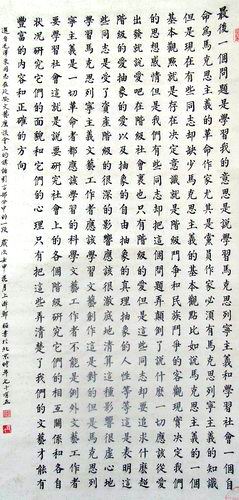 最後一個問題是學習我的意思是說學習馬克思列寧主義和學習社會一個自
命為馬克思主義的革命作家尤其是黨員作家必須有馬克思列寧主義的知識
但是現在有些同志卻缺少馬克思主義的基本觀點比如說馬克思主義的一個
基本觀點就是存在決定意識就是階級鬥爭和民族鬥爭的客觀現實決定我們
的思想感情但是我們有些同志卻把這個問題弄顛倒了說什麼一切應該從愛
出發就說愛吧在階級社會裏也只有階級的愛但是這些同志卻要追求什麼超
階級的愛抽象的愛以及抽象的自由抽象的真理抽象的人性等等這是表明這
些同志是受了資產階級的很深的影響應該很徹底地清算這種影響很虛心地
學習馬克思列寧主義文藝工作者應該學習文藝創作這是對的但是馬克思列
寧主義是一切革命者都應該學習的科學文藝工作者不能是例外文藝工作者
要學習社會這就是說要研究社會上的各個階級研究它們的相互關係和各自
狀況研究它們的面貌和它們的心理只有把這些弄清楚了我們的文藝才能有
豐富的內容和正確的方向
選自毛澤東同志在延安文藝座談會上的講話引言部分中的一段 歲次壬申月上鄭書於北京時年九十